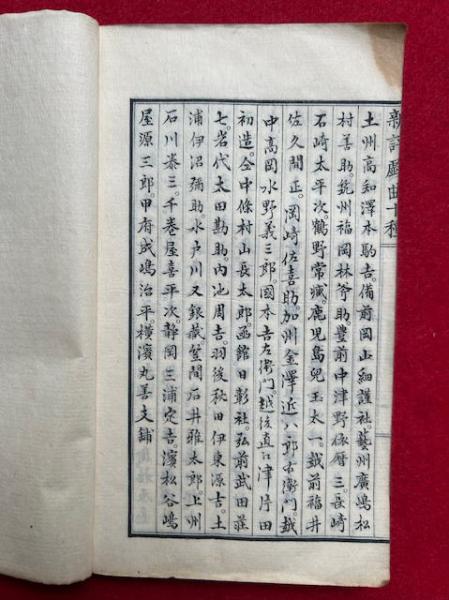 新評戯曲十種
土州高知澤本駒吉。備前岡山細謹社。藝州廣嶋松
村善助。筑州福岡林斧助。豊前中津野依暦三。長崎
石崎太平次。鶴野常藏。鹿児島兒玉太一。越前福井
佐久間正。岡崎佐喜助。加州金澤近八郎右衛門。越
中高岡水野義三郎。國本吉左衛門。越後直江津片田
初造。仝中條村山長太郎。函館日彰社。弘前武田荘
七。若代太田勘助。内池周吉。羽後秋田伊東源吉。土
浦伊沼彌助。水戸川又銀藏。笠間石井雅太郎。上州
石川泰三。千巻屋喜平次。静岡三浦定吉。濱松谷嶋
屋源三郎。甲府成嶋治平。横濱丸善支舗